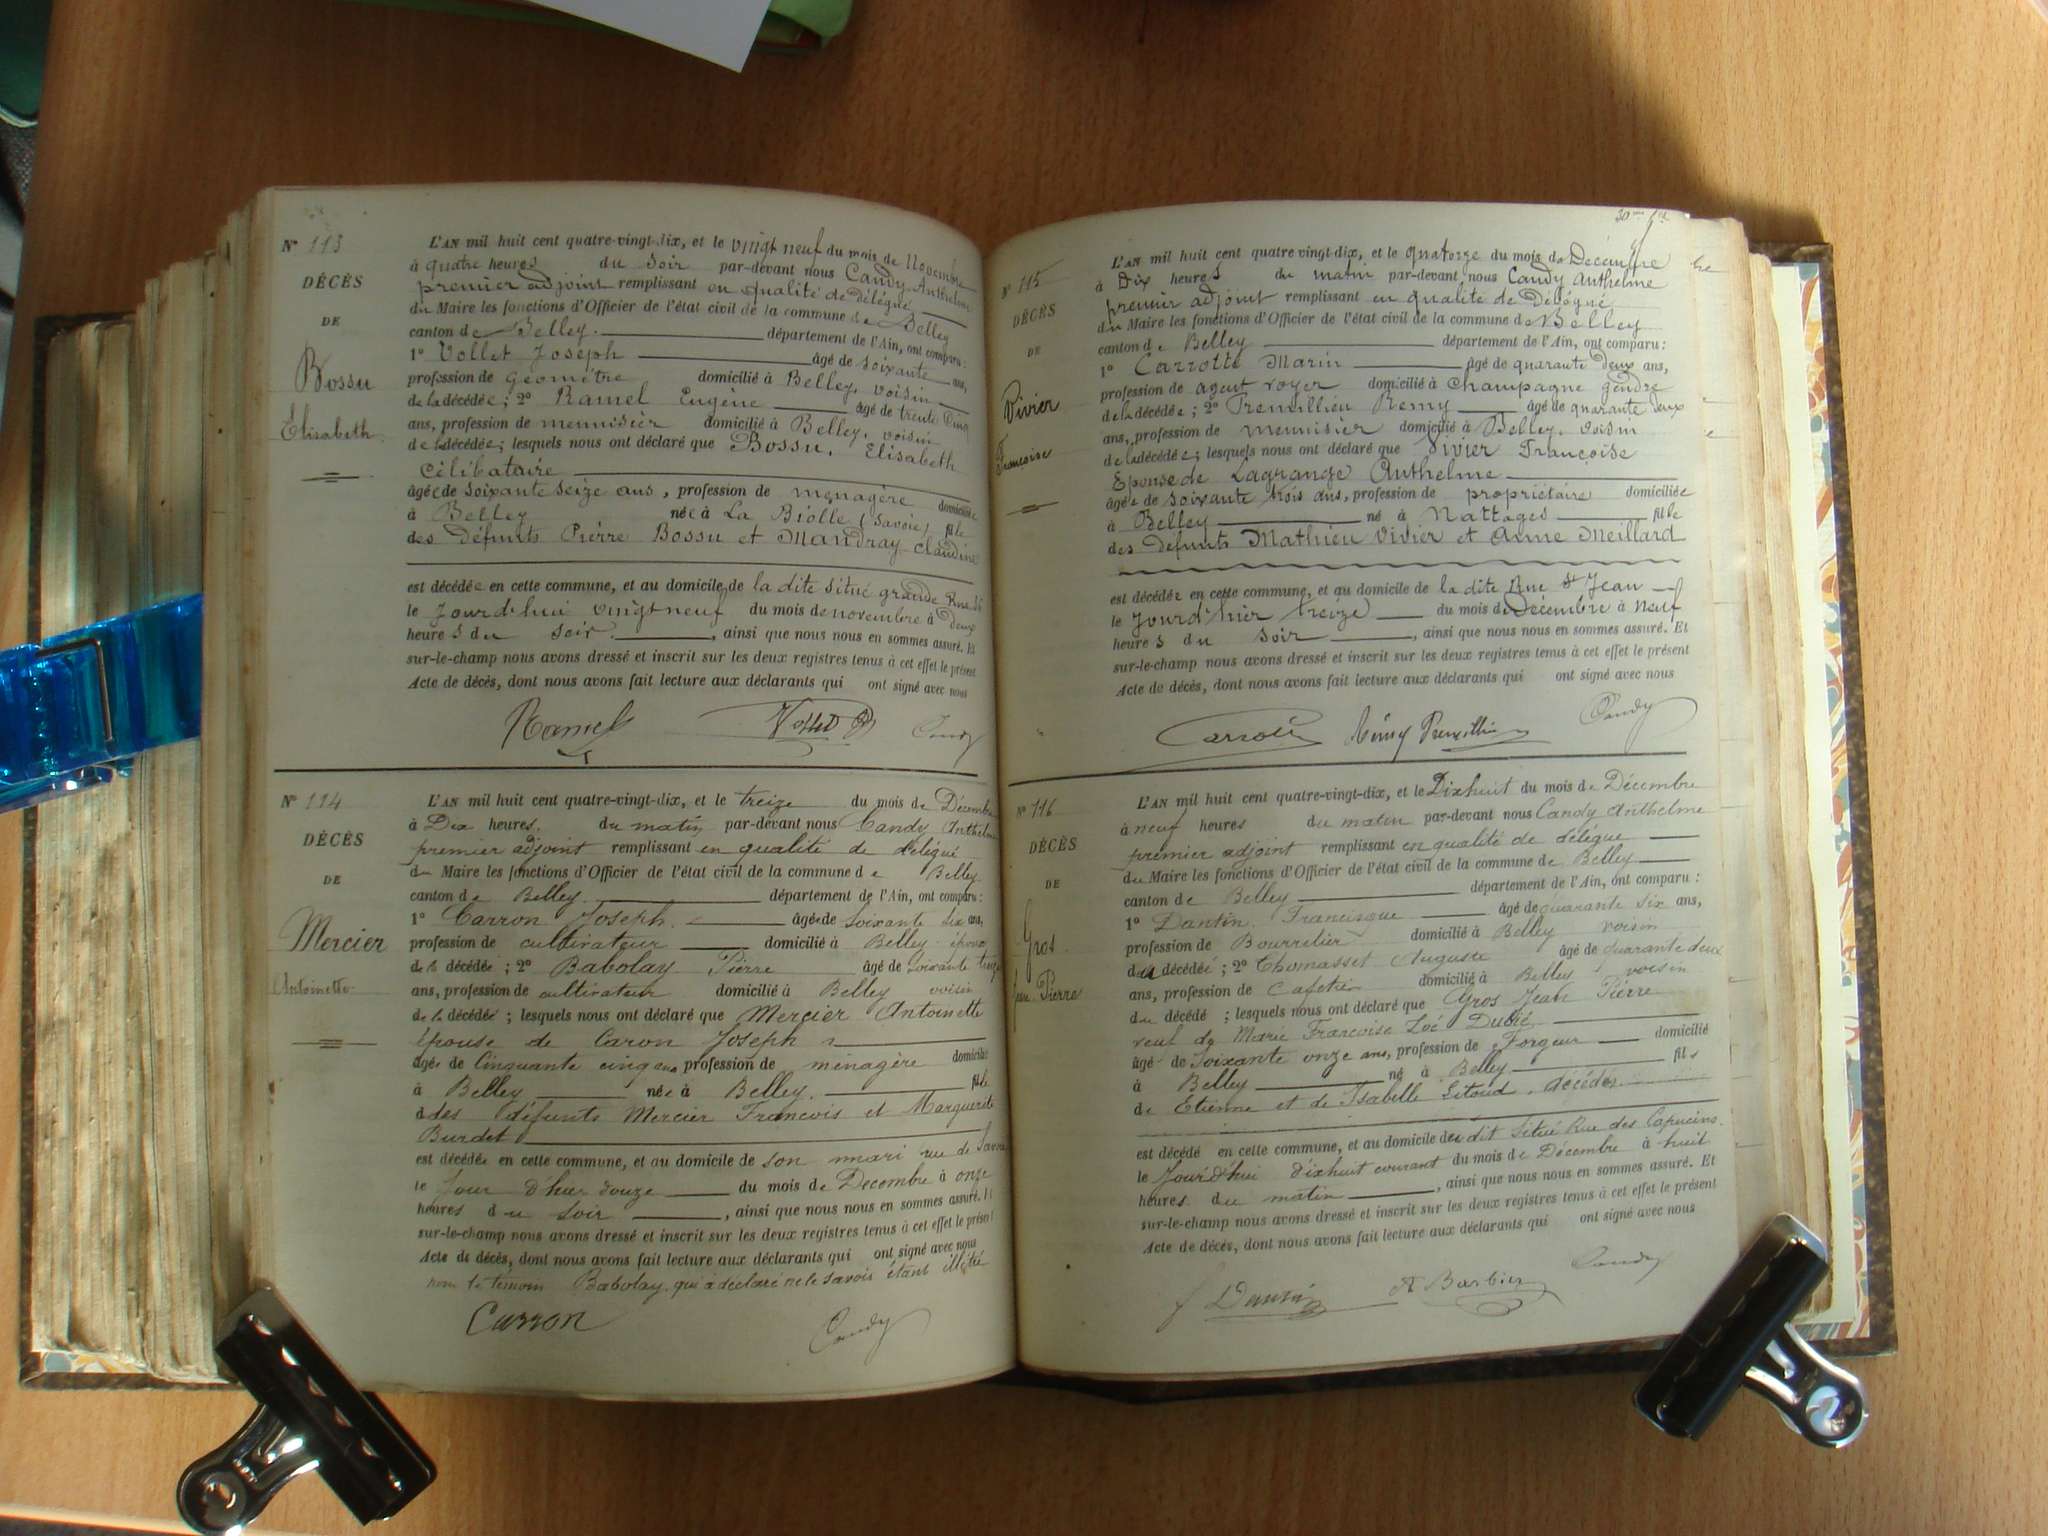 N° 113
DÉCÈS
DE
Bossu
Élisabeth
L'AN mil huit cent quatre-vingt-dix, et le vingt neuf du mois de Novembre
à quatre heures du soir par-devant nous Candy Anthelme
premier adjoint remplissant en qualité de Délégué
du Maire les fonctions d'Officier de l'état civil de la commune de Belley
canton de Belley. département de l'Ain, ont comparu :
1° Vollet Joseph âgé de soixante ans,
profession de géomètre domicilié à Belley, voisin
de la décédée ; 2° Ramel Eugène âgé de trente cinq
ans, profession de menuisier domicilié à Belley, voisin
de la décédée ; lesquels nous ont déclaré que Bossu, Elisabeth
Célibataire
âgée de soixante seize ans, profession de ménagère domiciliée
à Belley née à La Biolle (Savoie) fille
des Défunts Pierre Bossu et Mandray Claudine
est décédée en cette commune, et au domicile de la dite situé grande Rue
le Jourd'hui vingt neuf du mois de novembre à deux
heures du soir. , ainsi que nous nous en sommes assuré. Et
sur-le-champ nous avons dressé et inscrit sur les deux registres tenus à cet effet le présent
Acte de décès, dont nous avons fait lecture aux déclarants qui ont signé avec nous
Ramel Vollet Candy
N° 114
DÉCÈS
DE
Mercier
Antoinette
L'AN mil huit cent quatre-vingt-dix, et le treize du mois de Décembre
à Dix heures. du matin par-devant nous Candy Anthelme
premier adjoint remplissant en qualité de délégué
du Maire les fonctions d'Officier de l'état civil de la commune de Belley
canton de Belley. département de l'Ain, ont comparu :
1° Carron Joseph. âgé de soixante six ans,
profession de cultivateur domicilié à Belley époux
de la décédée ; 2° Babolay Pierre âgé de soixante treize
ans, profession de cultivateur domicilié à Belley voisin
de la décédée ; lesquels nous ont déclaré que Mercier Antoinette
épouse de Caron Joseph
âgée de Cinquante cinq ans profession de ménagère domiciliée
à Belley née à Belley. fille
des défunts Mercier François et Marguerite
Burdet
est décédée en cette commune, et au domicile de son mari rue de Savoie
le Jour d'hier douze du mois de Decembre à onze
heures du soir , ainsi que nous nous en sommes assuré. Et
sur-le-champ nous avons dressé et inscrit sur les deux registres tenus à cet effet le présent
Acte de décès, dont nous avons fait lecture aux déclarants qui ont signé avec nous
non le témoin Babolay, qui à déclaré ne le savoir étant illétré
Carron Candy
N° 115
DÉCÈS
DE
Vivier
Francoise
L'AN mil huit cent quatre-vingt-dix, et le quatorze du mois de Décembre
à Dix heures du matin par-devant nous Candy Anthelme
premier adjoint remplissant en qualité de Délégué
du Maire les fonctions d'Officier de l'état civil de la commune de Belley
canton de Belley département de l'Ain, ont comparu :
1° Carrotte Marin âgé de quarante deux ans,
profession de agent voyer domicilié à Champagne gendre
de la décédée ; 2° Premillieu Remy âgé de quarante deux
ans, profession de menuisier domicilié à Belley, voisin
de la décédée ; lesquels nous ont déclaré que Vivier Françoise
Epouse de Lagrange Anthelme
âgée de soixante trois ans, profession de propriétaire domiciliée
à Belley né à Nattages fille
des defunts Mathieu Vivier et Anne Meillard
est décédée en cette commune, et au domicile de la dite Rue St Jean
le Jourd'hier treize du mois de Décembre à Neuf
heures du soir , ainsi que nous nous en sommes assuré. Et
sur-le-champ nous avons dressé et inscrit sur les deux registres tenus à cet effet le présent
Acte de décès, dont nous avons fait lecture aux déclarants qui ont signé avec nous
Candy
N° 116
DÉCÈS
DE
Gros
Jean Pierre
L'AN mil huit cent quatre-vingt-dix, et le Dixhuit du mois de Décembre
à neuf heures du matin par-devant nous Candy Anthelme
premier adjoint remplissant en qualité de délégué
du Maire les fonctions d'Officier de l'état civil de la commune de Belley
canton de Belley département de l'Ain, ont comparu :
1° Dantin. Francisque âgé de quarante six ans,
profession de Bourrelier domicilié à Belley voisin
du décédé ; 2° Thomasset Auguste âgé de quarante deux
ans, profession de Cafetier domicilié à Belley voisin
du décédé ; lesquels nous ont déclaré que Gros Jean Pierre
veuf de Marie Francoise Zoé Dubié
âgé de Soixante onze ans, profession de Forgeur domicilié
à Belley né à Belley fils
de Etienne et de Isabelle Sitoud, décédés
est décédé en cette commune, et au domicile du dit situé Rue des Capucins.
le Jourd'hui dixhuit courant du mois de Décembre à huit
heures du matin , ainsi que nous nous en sommes assuré. Et
sur-le-champ nous avons dressé et inscrit sur les deux registres tenus à cet effet le présent
Acte de décès, dont nous avons fait lecture aux déclarants qui ont signé avec nous
Dantin A Barbier Candy